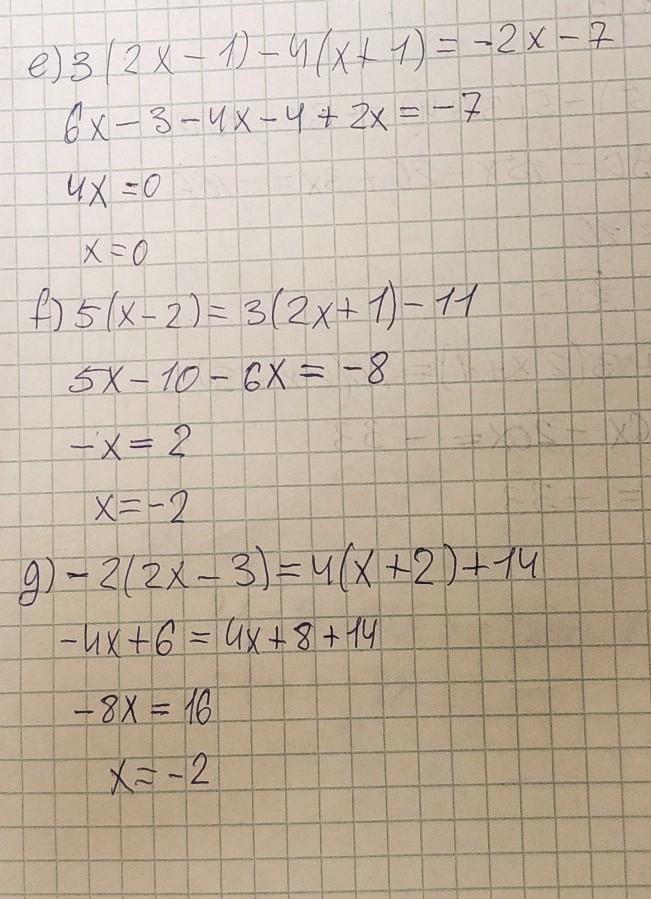 e) 3(2x-1)-4(x+1)=-2x-7
6x-3-4x-4+2x=-7
4x=0
x=0
f) 5(x-2)=3(2x+1)-11
5x-10-6x=-8
-x=2
x=-2
g) -2(2x-3)=4(x+2)+14
-4x+6=4x+8+14
-8x=16
x=-2